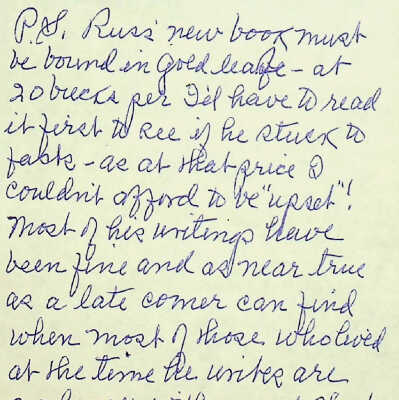 P.S. Russ' new book must
be bound in gold leafe - at
20 bucks per I'd have to read
it first to see if he stuck to
facts - as at that price I
couldn't afford to be "upset"!
Most of his writings have
been fine and as near true
as a late comer can find
when most of those who lived
at the time he writes are